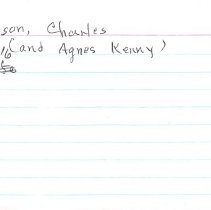 son, Charles
(and Agnes Kenny)